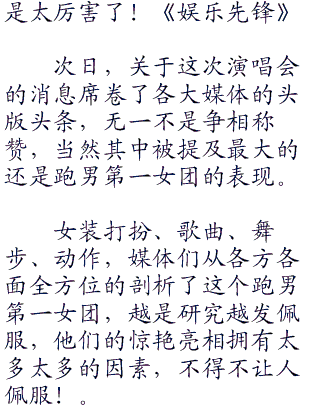 是太厉害了！《娱乐先锋》
次日，关于这次演唱会
的消息席卷了各大媒体的头
版头条，无一不是争相称
赞，当然其中被提及最大的
还是跑男第一女团的表现。
女装打扮、歌曲、舞
步、动作，媒体们从各方各
面全方位的剖析了这个跑男
第一女团，越是研究越发佩
服，他们的惊艳亮相拥有太
多太多的因素，不得不让人
佩服！。